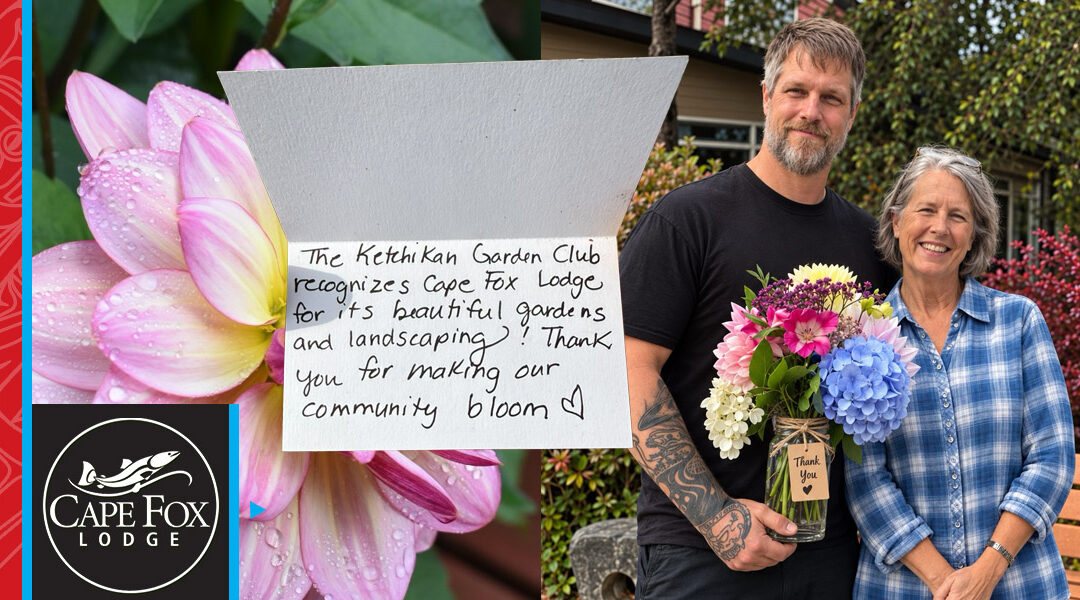 The Ketchikan Garden Club
recognizes Cape Fox Lodge
for its beautiful gardens
and landscaping! Thank
you for making our
community bloom
CAPE FOX
LODGE
Thank
You